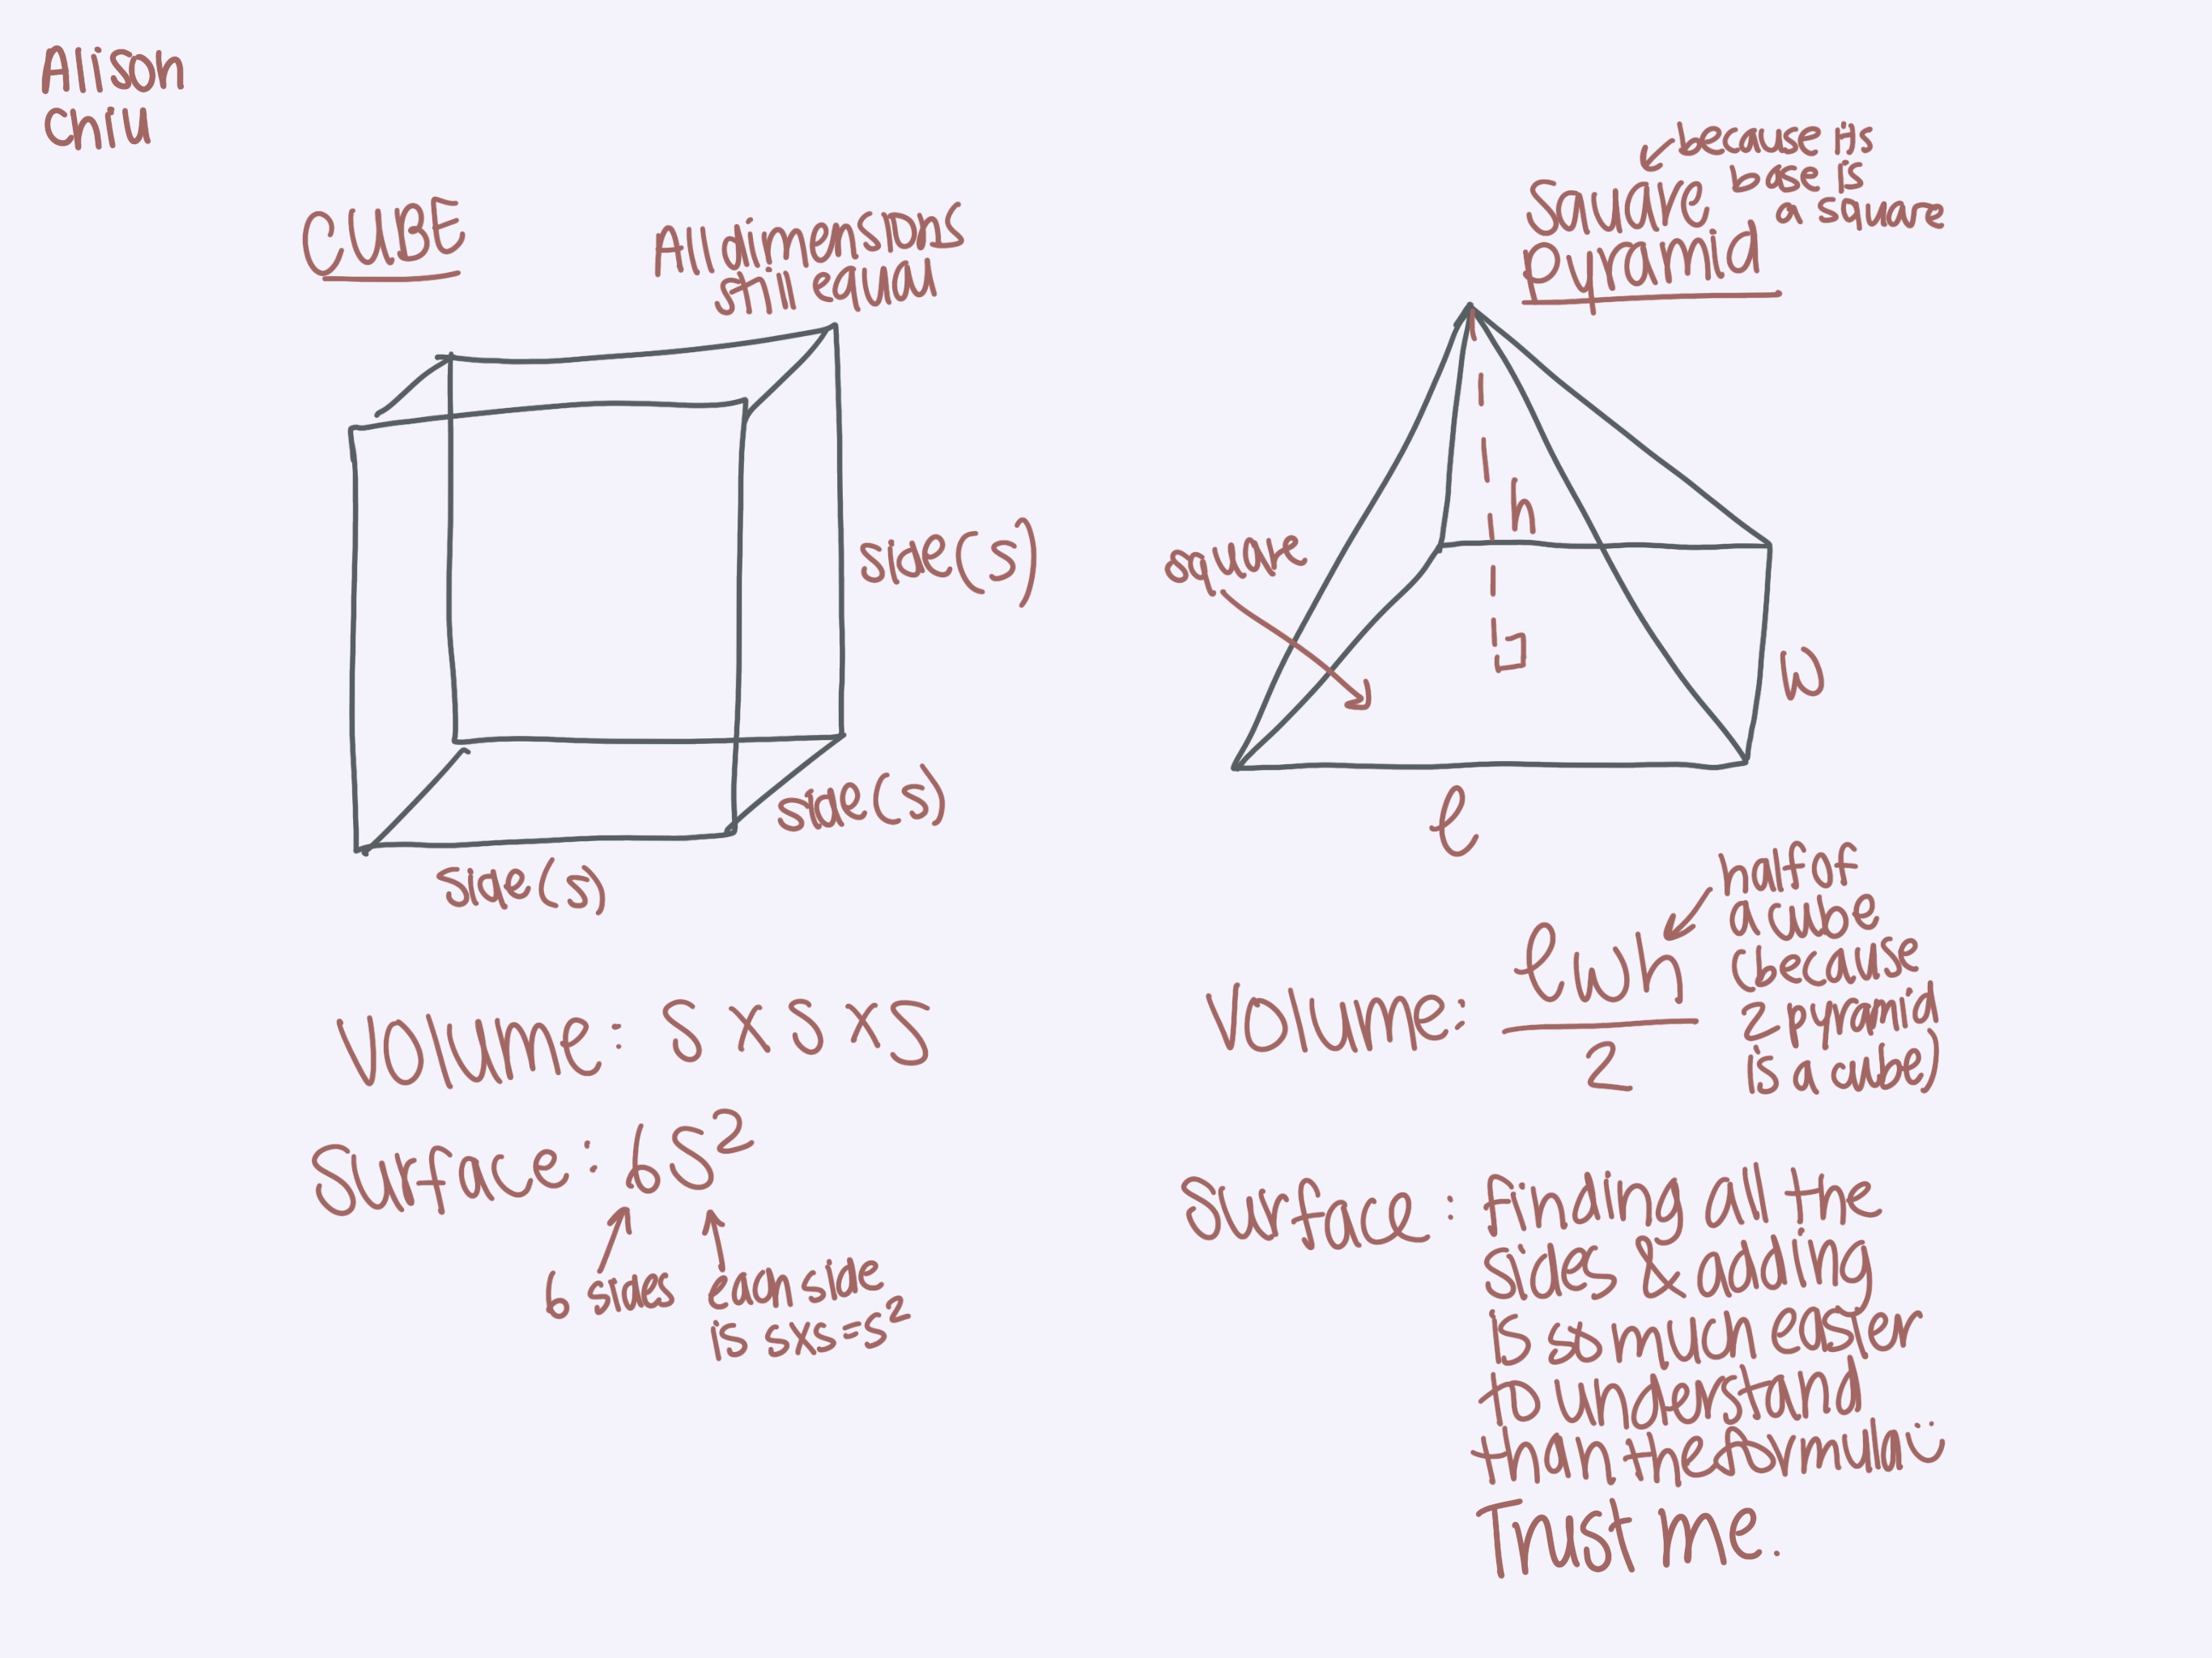 Alison
Chiu
CUBE
All dimensions
still equal
side(s)
side(s)
side(s)
Volume: s x s x s
Surface: 6s²
6 sides
each side
is sxs=s²
Square
Pyramid
because its
base is
a square
square
h
w
l
Volume: lwh
2
half of
a cube
(because
2 pyramid
is a cube)
Surface: finding all the
sides & adding
is so much easier
to understand
than the formula :)
Trust me.